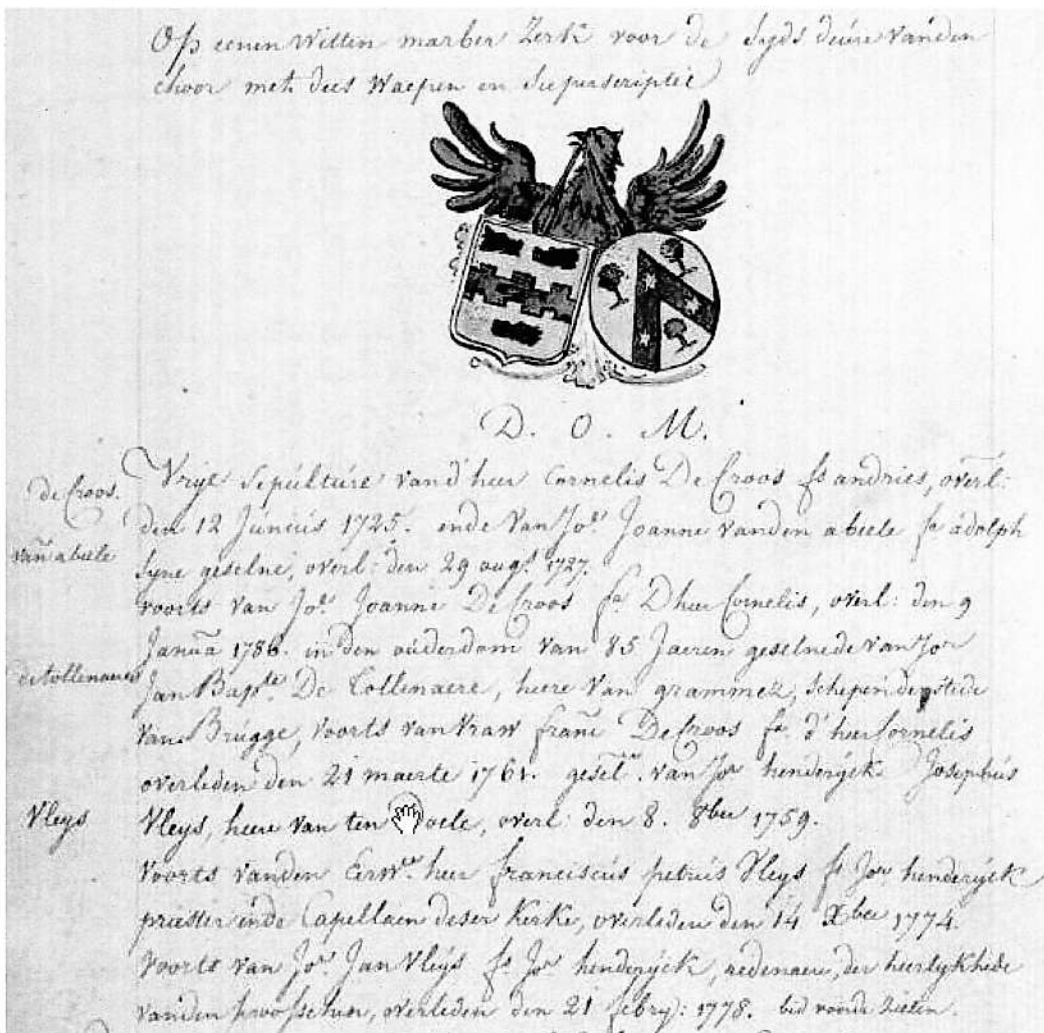 Op eenen Witten marber Zerk voor de Syds deure vanden
choor met dees Waepen en Superscriptie
D. O. M.
de Croos.
Vrije Sepulture vand'heer Cornelis De Croos fs andries, overl:
den 12 Junius 1725. ende van Jor Joanne vanden abeele fa adolph
van abeele
syne geselne, overl: den 29 augt 1727.
voorts van Joe Joanne De Croos fa D heer Cornelis, overl: den 9
Janua 1786. in den ouderdom van 85 Jaeren geselnede van Jor
de tollenaere
Jan Bapte De Tollenaere, heere van grammez, schepen der stede
van Brugge, voorts van Vrauw franc De Croos fa d'heer Cornelis
overleden den 21 maerte 1761. gesele. van Jor henderyck Josephus
Vleys
Vleys, heere van ten oele, overl: den 8. 8ber 1759.
Voorts vanden Eerw. heer franciscus petrus Vleys fs Jor henderyck
priester inde Capellaen deser Kerke, overleden den 14 Xber 1774.
Voorts van Jor Jan Vleys fs Jor henderyck, redenaere, der heerlykhede
vanden, overleden den 21 febry: 1778. bid voor de zielen.